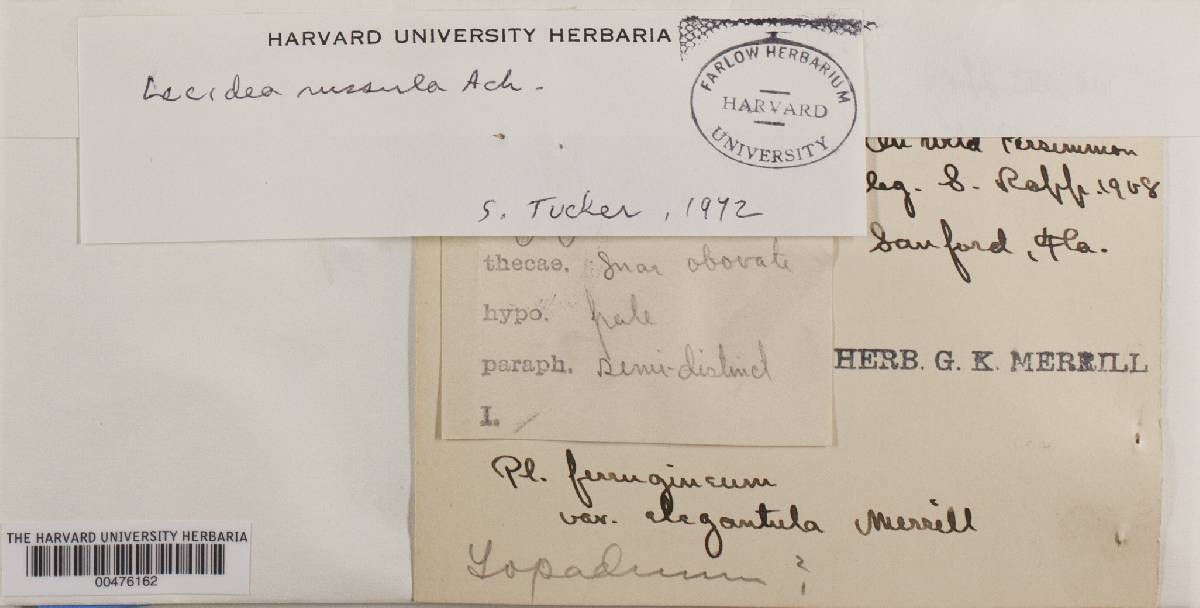 HARVARD UNIVERSITY HERBARIA
Lecidea russula Ach.
FARLOW HERBARIUM
HARVARD
UNIVERSITY
S. Tucker, 1972
On wild Persimmon
leg. S. Rapp. 1908
Sanford, Fla.
thecae. obovate
hypo. pale
paraph. semi-distinct
I. /
HERB. G. K. MERRILL
Pl. ferrugineum
var. elegantula Merrill
Lopadium ?
THE HARVARD UNIVERSITY HERBARIA
00476162